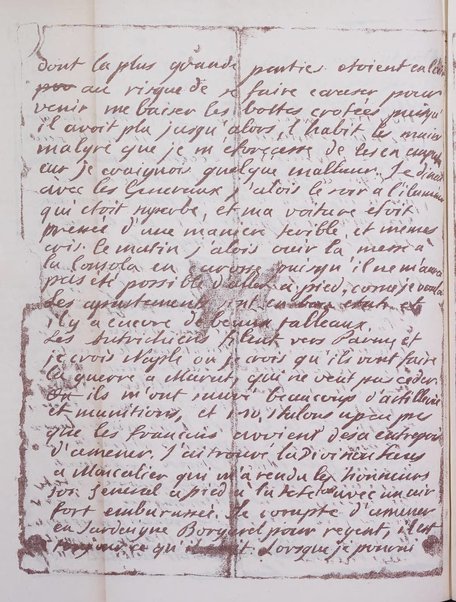 dont la plus grande parties etoient en
au risque de se faire ecraser pour
venir me baiser les bottes crotées puisqu
il avoit plu jusqu'alors, l'habit les mains
malgré que je m'eforçasse de les en empe
cur je craignois quelque malheur. Je dinai
avec les Generaux, j'alois le soir à l'ilumin
qui etoit superbe, et ma voiture etoit
pressée d'une maniere terible, et mêmes
cris. le matin j'alois ouir la messe à
la Consola en carosse puisqu'il ne m'aura
pas eté possible d'aller à pied, come je voula
Les apartements sont en bon etat et
il y a encore de beaux tableaux.
Les Autrichiens filent vers Parme et
je crois Naple on je crois qu'ils vont faire
la guerre a Murat, qui ne veut pas ceder.
ils m'ont livré beaucoup d'artillerie
et munitions, et
que les francais avoient desa
d'amener. J'ai trouvé la Division
a Moncalier qui m'a rendu les honneurs
son General a pied a la tete avec un air
fort embarassé. Je compte d'amener
en Sardeigne Borgarel pour regent, il est
ce qu'il Lorsque je pourai